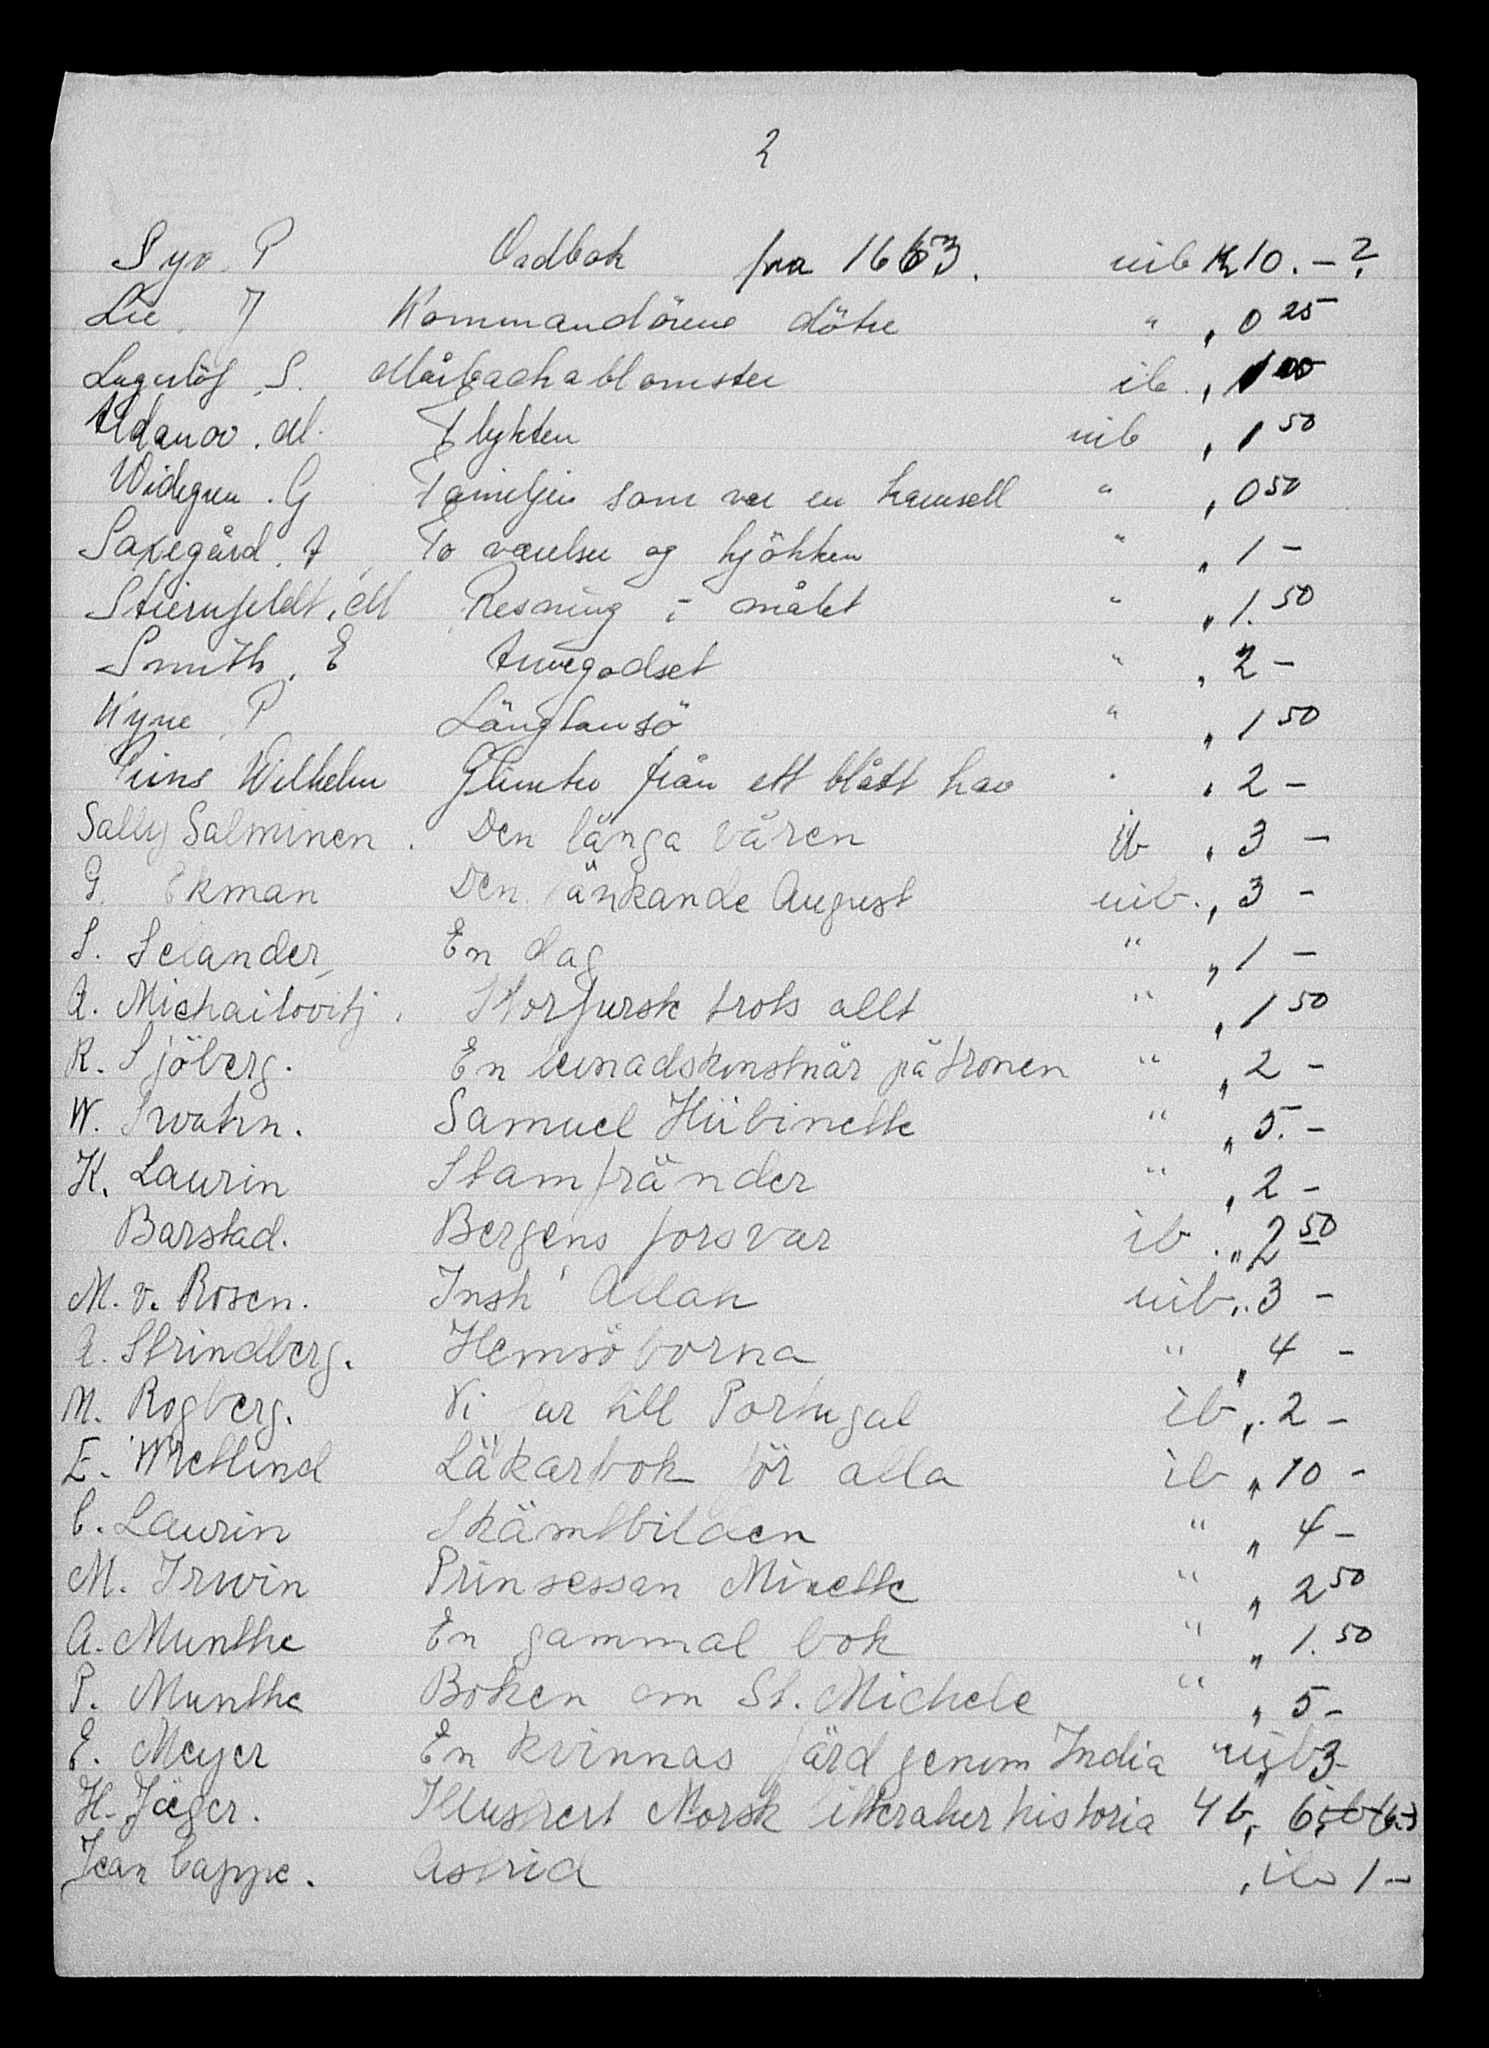 2
Syv. P Ordbok fra 1663. uib Kr 10.-?
Lie. J Kommandörens dötre " „ 0 25
Lagerlöf S. Mårbackablomster ib. „ 1 00
Aldanov. M. Flykten uib „ 1 50
Widegren. G Familjen som var en hamsell " „ 0 50
Saxegård. A To værelser og kjökken " „ 1 -
Stiernfeldt, M Resning i målet " „ 1. 50
Smith, E Arvegodset " „ 2 -
Wyne P Långlansö " „ 1 50
Prins Wilhelm Glimtar från ett blått hav " „ 2 -
Sally Salminen. Den långa våren ib „ 3 -
G. Ekman Den tänkande August uib. „ 3 -
S. Selander, En dag " „ 1 -
A. Michailovitj. Storfursk trots allt " „ 1 50
R. Sjöberg. En levnadskonstnär på tronen " „ 2 -
W. Swahn. Samuel Hübinette " „ 5. -
K. Laurin Stamfränder " „ 2 -
Barstad. Bergens forsvar ib. „ 2 50
M. v. Rosen. Insh' Allah uib „ 3 -
A. Strindberg. Hemsöborna " „ 4 -
M. Rogberg. Vi far till Portugal ib „ 2 -
E. Wretlind Läkarbok för alla ib „ 10 -
C. Laurin Skämtbilden " „ 4 -
M. Irwin Prinsessan Minette " „ 2 50
A. Munthe En gammal bok " „ 1. 50
P. Munthe Boken om St. Michele " „ 5 -
E. Meyer En kvinnas färd genom India uib 3-
H. Jæger. Illustrert Norsk litteraturhistoria 4 b, 6,
Jean Cappe. Astrid „ ib 1 -